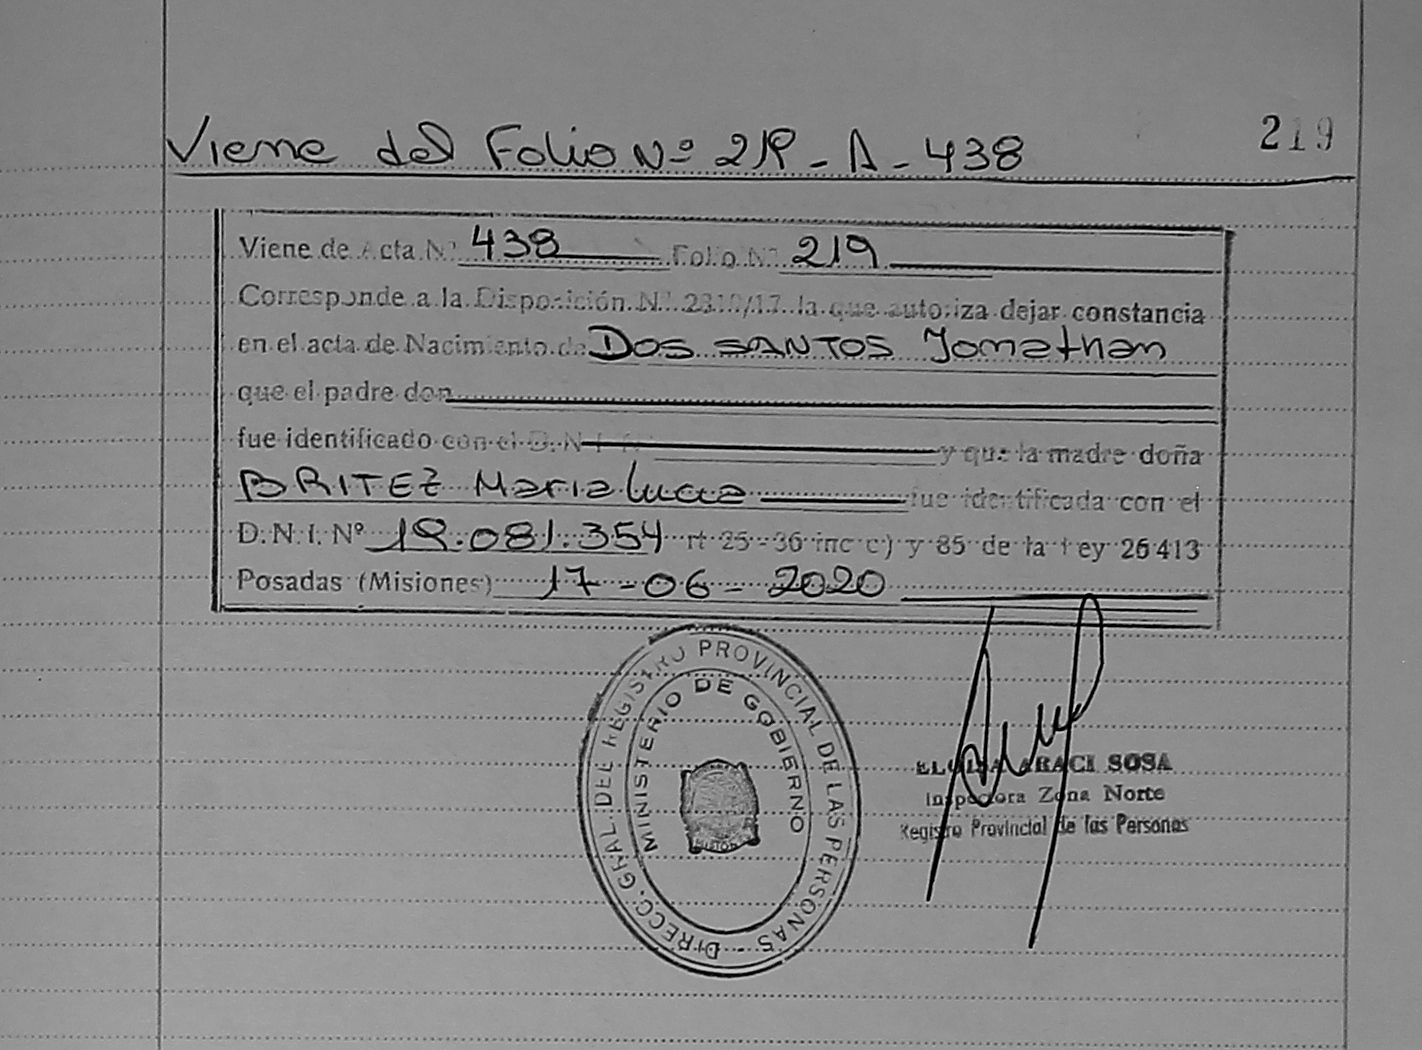 219
Viene del Folio Nº 219 - A - 438
Viene de Acta Nº 438 Folio Nº 219
Corresponde a la Disposición Nº 2310/17 la que autoriza dejar constancia
en el acta de Nacimiento de DOS SANTOS Jonathan
que el padre don
fue identificado con el D.N.I. Nº y que la madre doña
BRITEZ Maria lucia fue identificada con el
D.N.I. Nº 19.081.354 rt 25 - 36 inc c) y 85 de la Ley 26413
Posadas (Misiones) 17 - 06 - 2020
DIRECC. GRAL. DEL REGISTRO PROVINCIAL DE LAS PERSONAS
MINISTERIO DE GOBIERNO
ARACI SOSA
Inspectora Zona Norte
Registro Provincial de las Personas